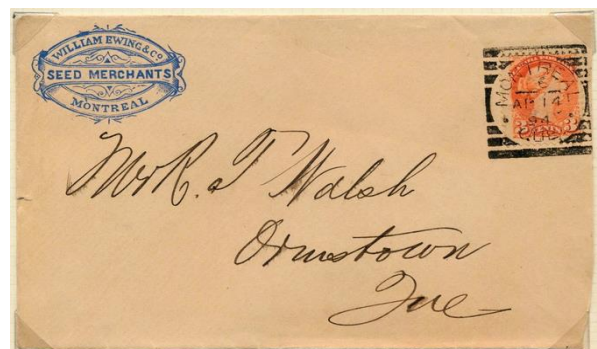 WILLIAM EWING & CO
SEED MERCHANTS
MONTREAL
MONTREAL
AP 14
94
QUE
3 3
Mr R. T Walsh
Ormstown
Que